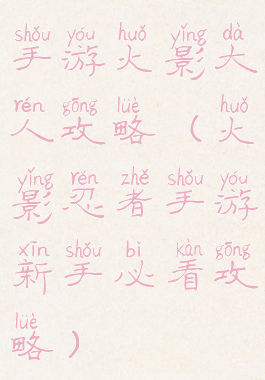 shǒu yóu huǒ yǐng dà
手游火影大
rén gōng lüè huǒ
人攻略（火
yǐng rěn zhě shǒu yóu
影忍者手游
xīn shǒu bì kàn gōng
新手必看攻
lüè
略）